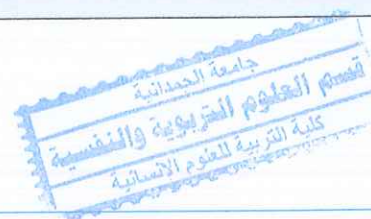 جامعة الحمدانية
قسم العلوم التربوية والنفسية
كلية التربية للعلوم الانسانية